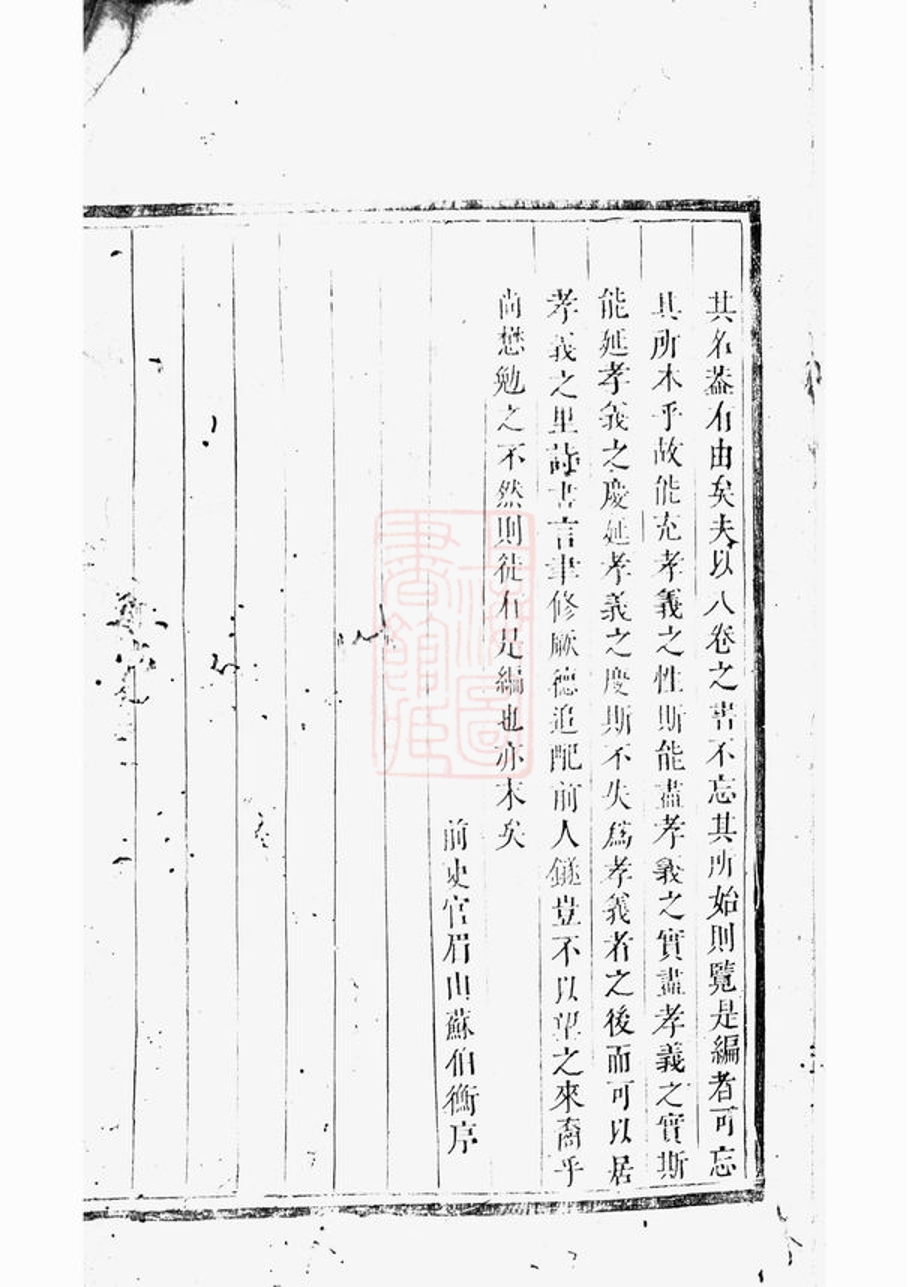 其名葢有由矣夫以八卷之書不忘其所始則覽是編者可忘
其所本乎故能充孝義之性斯能盡孝義之實盡孝義之實斯
能延孝義之慶延孝義之慶斯不失爲孝義者之後而可以居
孝義之里詩書言聿修厥德追配前人鐩豈不以望之來裔乎
尚懋勉之不然則徒有是編也亦末矣
前史官眉山蘇伯衡序
上海圖
書館藏